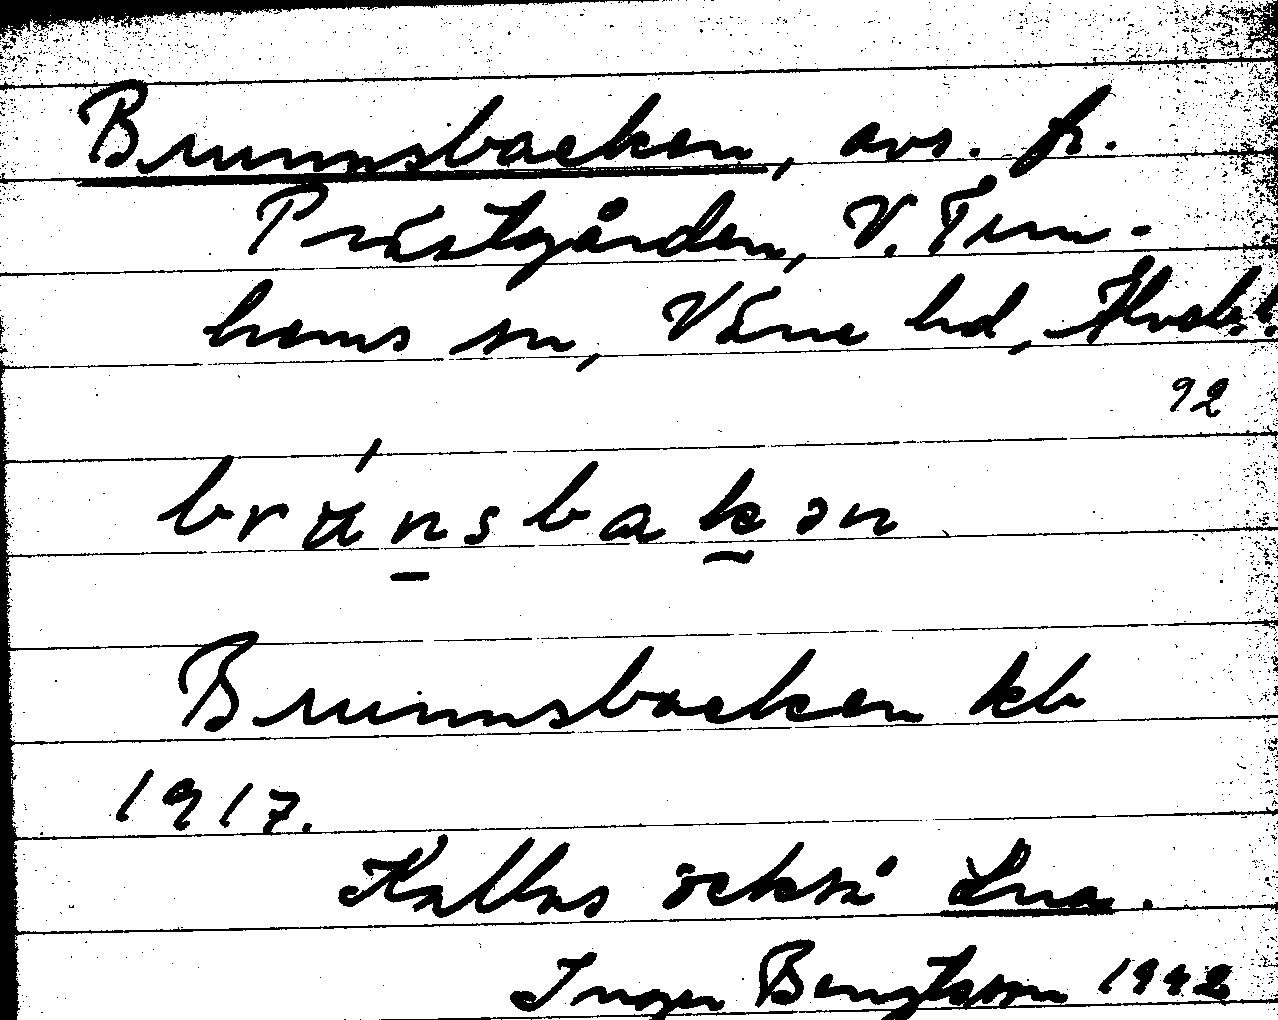 Brunnsbacken, avs. fr.
Prästgården, V. Tun-
hems sn, Väne hd, Älvsb. l.
92
brunsbakən
Brunnsbacken kb
1917.
Kallas också Lua.
Inger Bengtsson 1942